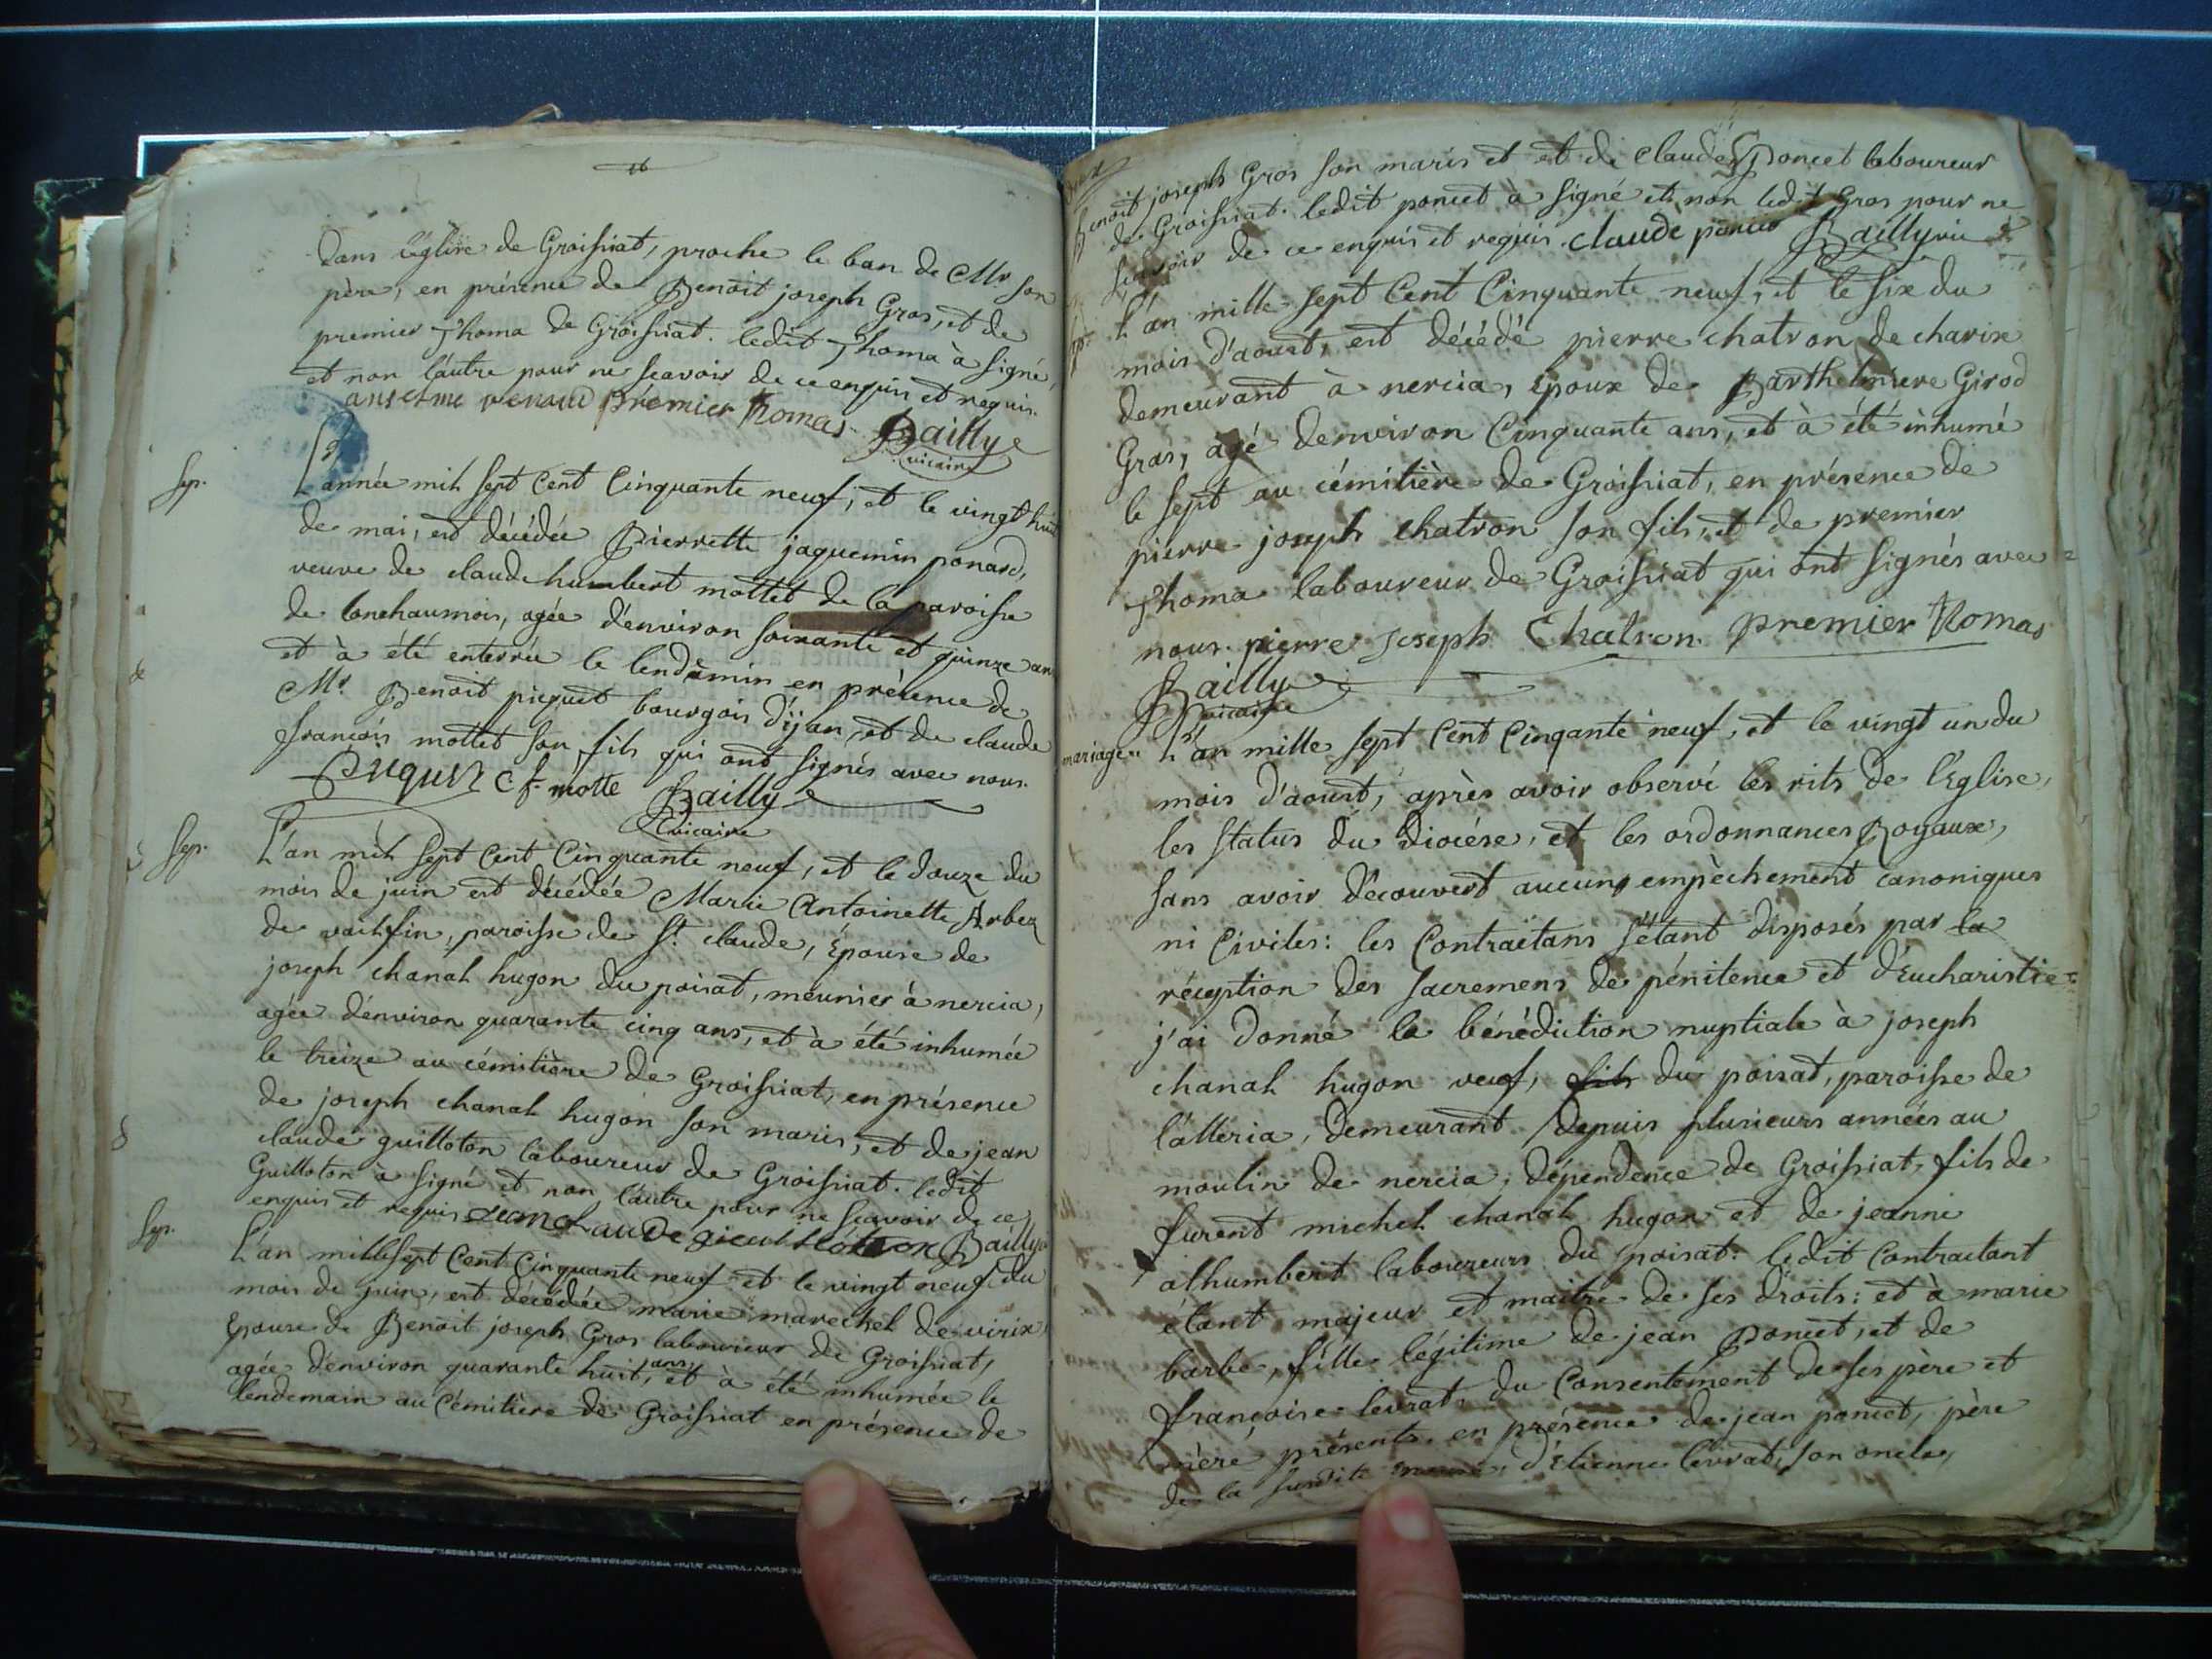 dans l'église de Groissiat, proche le ban de Mr son
père, en présence de Benoit joseph Gros, et de
premier Thoma de Groissiat. ledit Thoma à signé,
et non l'autre pour ne scavoir de ce enquis et requis.
premier Thomas Bailly
vicaire
Sep.
L'année mil sept cent cinquante neuf, et le vingt huit
de mai, est décédée Pierrette jaquemin ponard,
veuve de claude humbert mottet de la paroisse
de lonchaumois, agée d'environ soixante et quinze ans
et à été enterrée le lendemin en présence de
Mr. Benoit piequet bourgois d'ijan, et de claude
françois mottet son fils qui ont signés avec nous.
C f. motte Bailly
vicaire
Sep.
L'an mil sept cent cinquante neuf, et le douze du
mois de juin est décédée Marie Antoinette Arbez
de vailfin, paroisse de St. claude, Épouse de
joseph chanal hugon du poisat, meunier à nercia,
agée d'environ quarante cinq ans, et à été inhumée
le treize au cémitière de Groissiat, en présence
de joseph chanal hugon son maris, et de jean
claude guilloton laboureur de Groissiat. ledit
Guilloton à signé et non l'autre pour ne scavoir de ce
enquis et requis Bailly
Sep.
L'an mille sept cent cinquante neuf et le vingt neuf du
mois de juin, est décédée marie marechel de virix,
Epouse de Benoit joseph Gros laboureur de Groissiat,
agée d'environ quarante huit ans, et à été inhumée le
lendemain au cémitière de Groissiat en présence de
Benoit joseph Gros son maris et et de claude Poncet laboureur
de Groissiat. ledit poncet à signé et non ledit Gros pour ne
scavoir de ce enquis et requis. claude poncet Bailly vic
L'an mille sept cent cinquante neuf, et le six du
mois d'aoust, est décédé pierre chatron de charix
demeurant à nercia, époux de Barthelmiere Girod
Gras, agé d'environ cinquante ans, et à été inhumé
le sept au cémitière de Groissiat, en présence de
pierre joseph chatron son fils, et de premier
Thoma laboureur de Groissiat qui ont signés avec
nous. pierre Joseph Chatron premier Thomas
Bailly
vicaire
mariage
L'an mille sept cent cinqante neuf, et le vingt un du
mois d'aoust, après avoir observé les rits de l'Eglise,
les status du diocése, et les ordonnances Royaux,
sans avoir découvert aucun empêchement canoniques
ni civiles: les contractans s'étant disposés par la
réception des sacremens de pénitence et d'Eucharistie
j'ai donné la bénédiction nuptiale à joseph
chanal hugon veuf, fils du poisat, paroisse de
l'alleria, demeurant depuis plusieurs années au
moulin de nercia, dépendence de Groissiat, fils de
furent michel chanal hugon et de jeanne
alhumbert laboureurs du poisat: ledit contractant
étant majeur et maitre de ses droits: et à marie
barbe, fille légitime de jean Poncet, et de
françoise levrat, du consentement de ses père et
mère présents. en présence de jean poncet, père
de la susdite d'Etienne levrat, son oncle,